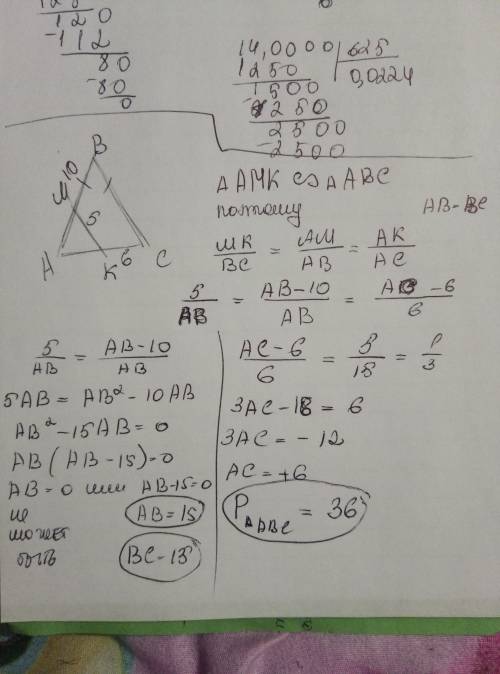 120
-112
80
-80
0
14,0000 | 625
1250 | 0,0224
1500
1250
2500
-2500
B
10
M
5
A
K
6
C
△AMK ∽ △ABC
поэтому
AB-BC
MK/BC = AM/AB = AK/AC
5/AB = AB-10/AB = AC-6/6
5/AB = AB-10/AB
5AB = AB² - 10AB
AB² - 15AB = 0
AB(AB-15)=0
AB=0 или AB-15=0
не
может
быть
AB=15
BC-15
AC-6/6 = 5/15 = 1/3
3AC-18 = 6
3AC = -12
AC = +6
P△ABC = 36